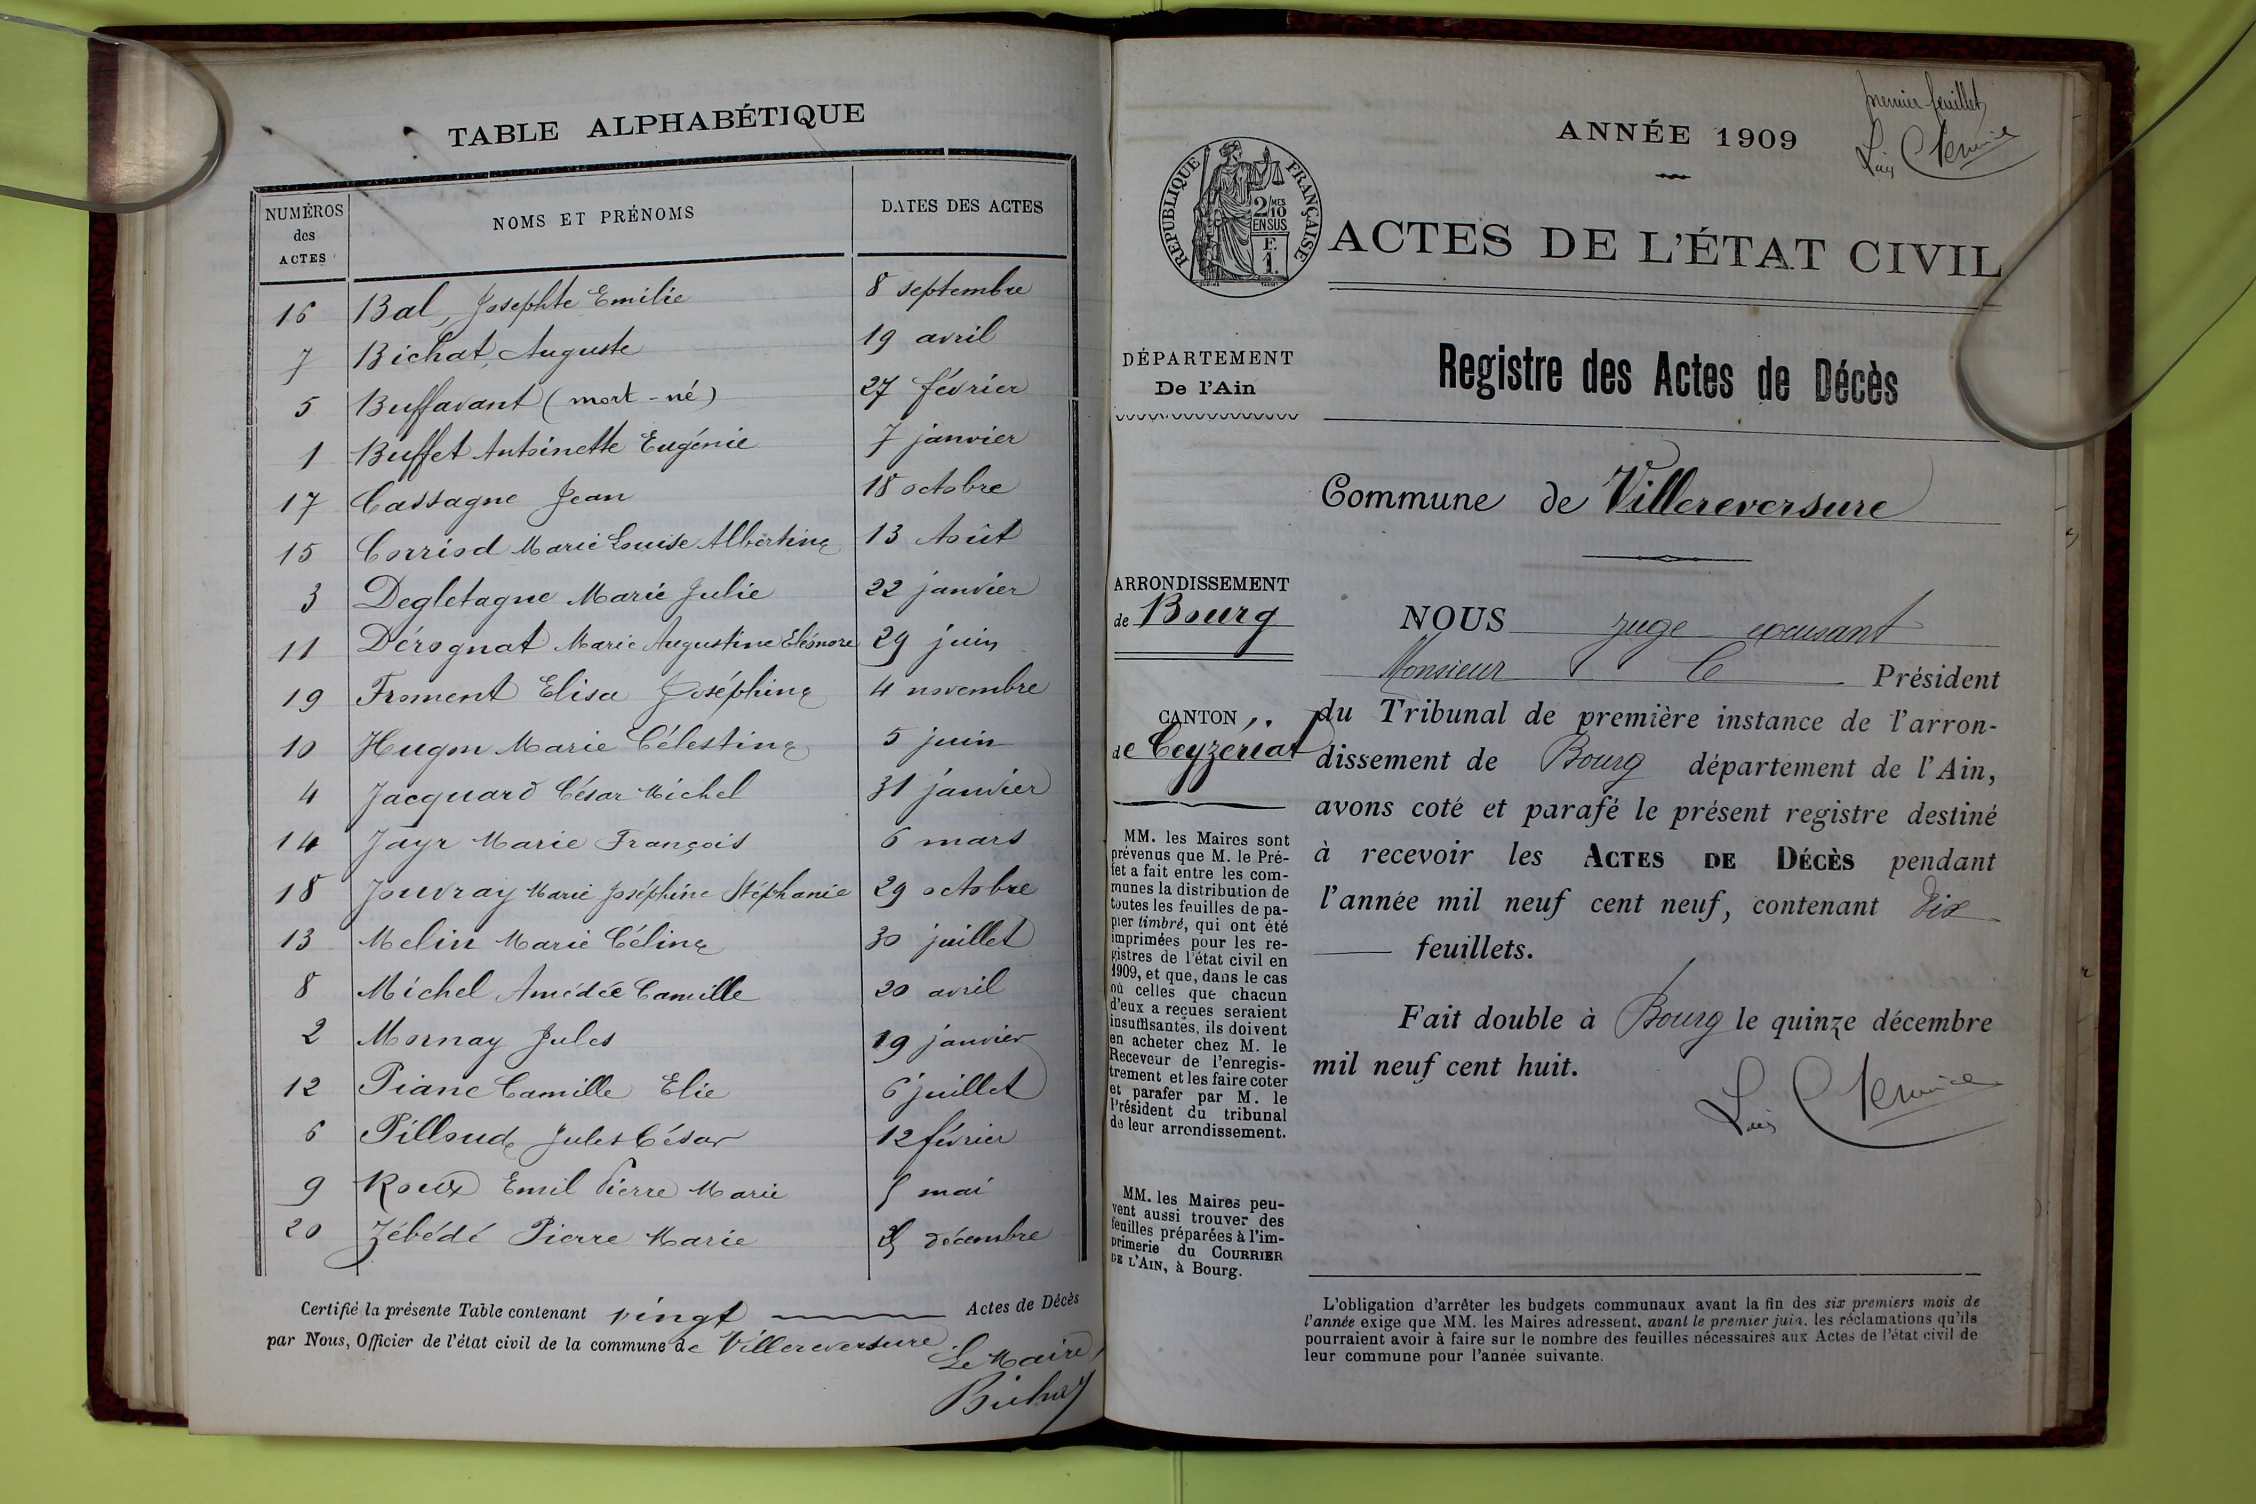 TABLE ALPHABÉTIQUE
NUMÉROS des ACTES NOMS ET PRÉNOMS DATES DES ACTES
16 Bal, Josephte Emilie 8 septembre
7 Bichat, Auguste 19 avril
5 Buffavant (mort-né) 27 février
1 Buffet Antoinette Eugénie 7 janvier
17 Cassagne Jean 18 octobre
15 Corriod Marie Louise Albertine 13 Août
3 Degletagne Marie Julie 22 janvier
11 Dérognat Marie Augustine Eléonore 29 juin
19 Froment Elisa Joséphine 4 novembre
10 Hugon Marie Célestine 5 juin
4 Jacquard César Michel 31 janvier
14 Jayr Marie François 6 mars
18 Jouvray Marie Joséphine Stéphanie 29 octobre
13 Melin Marie Céline 30 juillet
8 Michel Amédée Camille 20 avril
2 Mornay Jules 19 janvier
12 Piane Camille Elie 6 juillet
6 Pilloud Jules César 12 février
9 Roux Emil Pierre Marie 5 mai
20 Zébédé Pierre Marie décembre
Certifié la présente Table contenant vingt Actes de Décès
par Nous, Officier de l'état civil de la commune de Villereversure.
Le Maire,
premier feuillet
ANNÉE 1909
RÉPUBLIQUE FRANÇAISE
2/10 MES
EN SUS
F.
1.
ACTES DE L'ÉTAT CIVIL
DÉPARTEMENT
De l'Ain
Registre des Actes de Décès
Commune de Villereversure
ARRONDISSEMENT
de Bourg
CANTON
de Ceyzériat
MM. les Maires sont
prévenus que M. le Pré-
fet a fait entre les com-
munes la distribution de
toutes les feuilles de pa-
pier timbré, qui ont été
imprimées pour les re-
gistres de l'état civil en
1909, et que, dans le cas
où celles que chacun
d'eux a reçues seraient
insuffisantes, ils doivent
en acheter chez M. le
Receveur de l'enregis-
trement et les faire coter
et parafer par M. le
Président du tribunal
de leur arrondissement.
MM. les Maires peu-
vent aussi trouver des
feuilles préparées à l'im-
primerie du COURRIER
DE L'AIN, à Bourg.
NOUS juge excusant
Monsieur le Président
du Tribunal de première instance de l'arron-
dissement de Bourg département de l'Ain,
avons coté et parafé le présent registre destiné
à recevoir les ACTES DE DÉCÈS pendant
l'année mil neuf cent neuf, contenant dix
feuillets.
Fait double à Bourg le quinze décembre
mil neuf cent huit.
L'obligation d'arrêter les budgets communaux avant la fin des six premiers mois de
l'année exige que MM. les Maires adressent, avant le premier juin, les réclamations qu'ils
pourraient avoir à faire sur le nombre des feuilles nécessaires aux Actes de l'état civil de
leur commune pour l'année suivante.